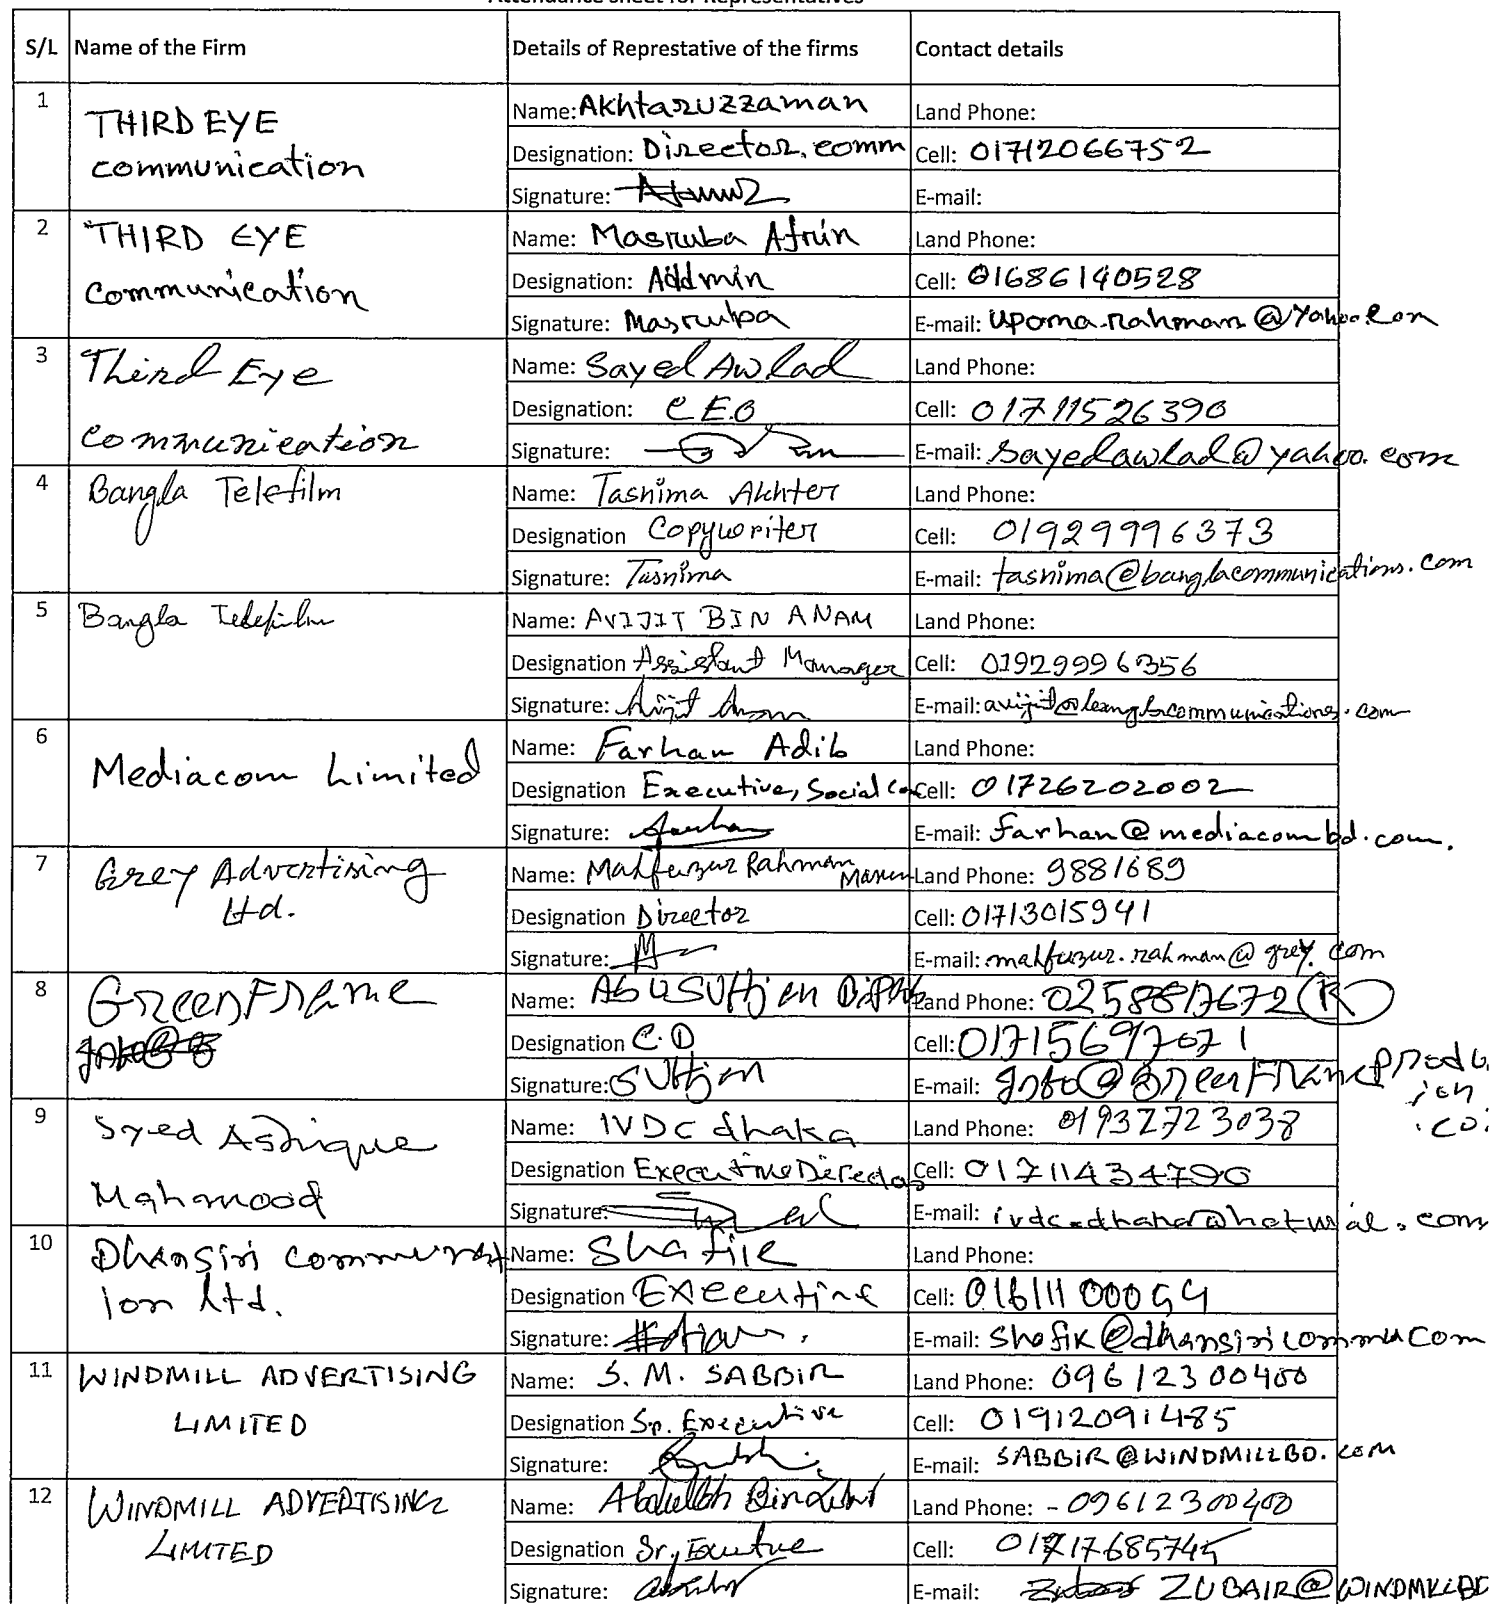 Attendance Sheet for Representatives
S/L Name of the Firm Details of Represtative of the firms Contact details
1 THIRD EYE communication
Name: Akhtaruzzaman Land Phone:
Designation: Director, comm Cell: 01712066752
Signature: E-mail:
2 THIRD EYE communication
Name: Masruba Afrin Land Phone:
Designation: Addmin Cell: 01686140528
Signature: Masruba E-mail: upoma.rahman@Yahoo.com
3 Third Eye communication
Name: Sayed Awlad Land Phone:
Designation: C.E.O Cell: 01711526390
Signature: E-mail: sayedawlad@yahoo.com
4 Bangla Telefilm
Name: Tasnima Akhter Land Phone:
Designation Copywriter Cell: 01929996373
Signature: Tasnima E-mail: tasnima@banglacommunications.com
5 Bangla Telefilm
Name: AVIJIT BIN ANAM Land Phone:
Designation Assistant Manager Cell: 01929996356
Signature: Avijit Anam E-mail: avijit@banglacommunications.com
6 Mediacom Limited
Name: Farhan Adib Land Phone:
Designation Executive, Social Cell: 01726202002
Signature: Farhan E-mail: farhan@mediacombd.com.
7 Grey Advertising Ltd.
Name: Mahfuzur Rahman Land Phone: 9881689
Designation Director Cell: 01713015941
Signature: E-mail: mahfuzur.rahman@grey.com
8 GreenFrame
Name: Land Phone: R
Designation C.D Cell: 01715697071
Signature: E-mail: info@greenFrameproduction.co
9 Syed Ashique Mahmood
Name: IVDC dhaka Land Phone: 01932723038
Designation Executive Director Cell: 01711434790
Signature: E-mail:
10 Dhansiri communication ltd.
Name: Shafik Land Phone:
Designation Executive Cell:
Signature: E-mail: Shofik@dhansiricommu.com
11 WINDMILL ADVERTISING LIMITED
Name: S. M. SABBIR Land Phone: 09612300400
Designation Sr. Executive Cell: 01912091485
Signature: E-mail: SABBIR@WINDMILLBD.com
12 WINDMILL ADVERTISING LIMITED
Name: Abdullah Bin Land Phone: - 09612300400
Designation Sr. Executive Cell: 01717685745
Signature: E-mail: ZUBAIR@WINDMILLBD